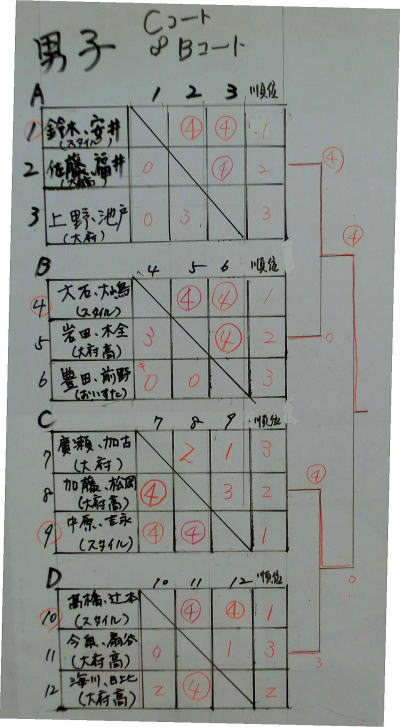 男子
Cコート
& Bコート
A 1 2 3 順位
1 鈴木、安井 ④ ④ 1
(スタイル)
2 佐藤、福井 0 ④ 2
3 上野、池戸 0 3 3
(大府)
④
④
B 4 5 6 順位
4 大石、 ④ ④ 1
(スタイル)
5 岩田、 3 ④ 2
(大府高)
0
6 豊田、前野 0 0 3
(おいすた)
C 7 8 9 順位
7 廣瀬、加古 2 1 3
(大府)
8 加藤、松岡 ④ 3 2
(大府高)
④
9 中原、吉永 ④ ④ 1
(スタイル)
0
D 10 11 12 順位
10 高橋、辻本 ④ ④ 1
(スタイル)
11 今泉、 0 1 3
(大府高)
3
12 2 ④ 2
(大府高)